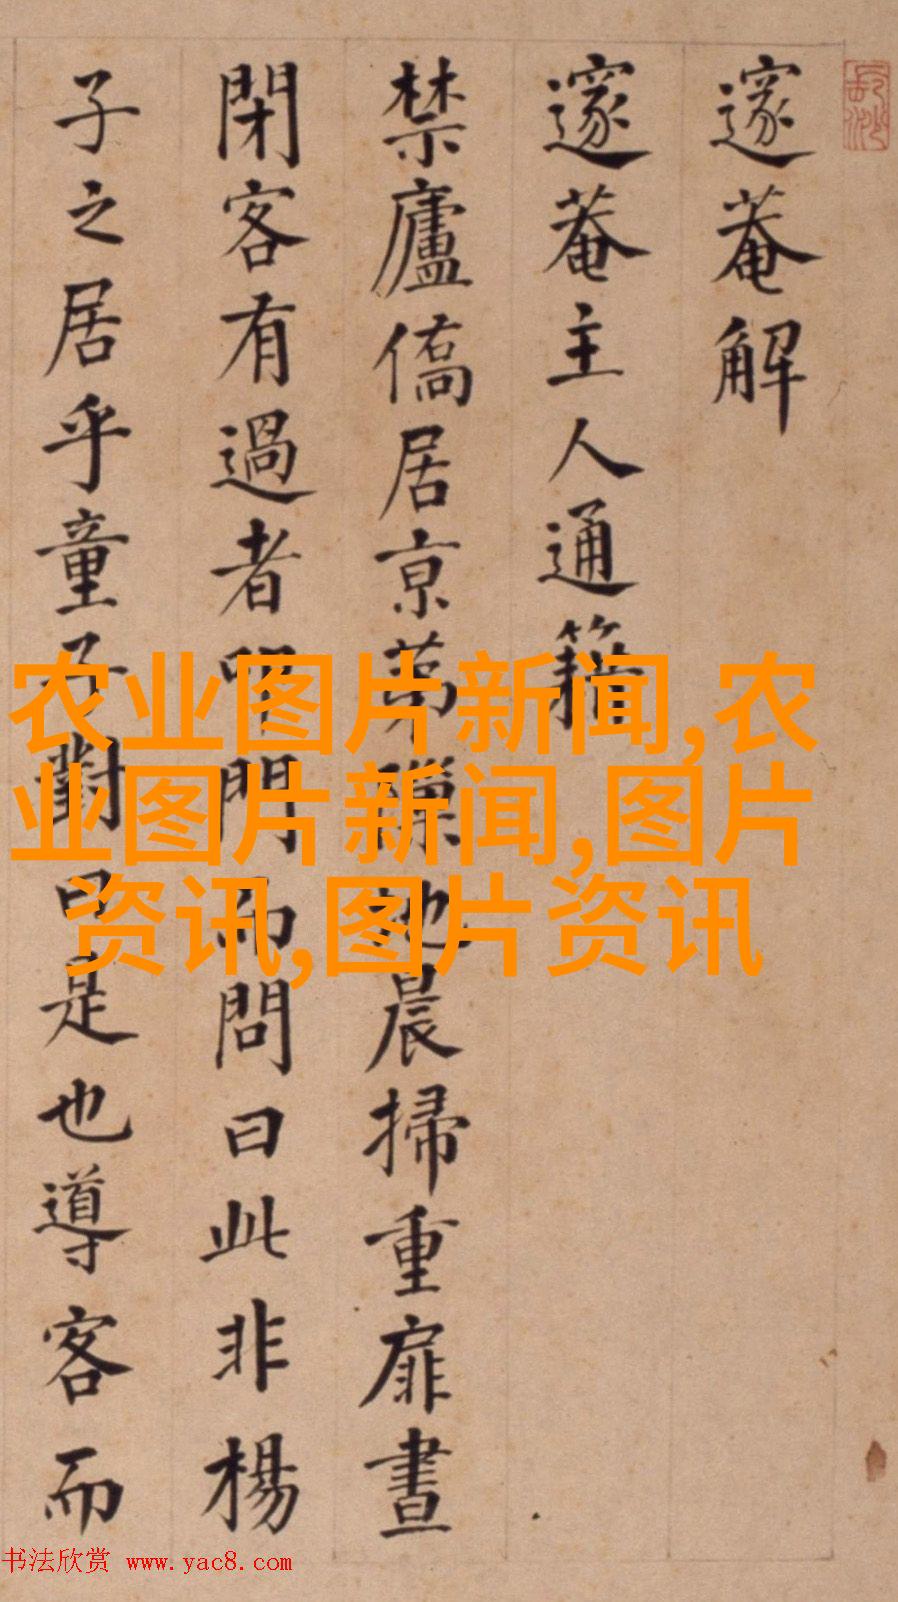 邃菴解
邃菴主人通籍
禁廬僑居京苐躧地晨掃重扉晝
閉客有過者叩門而問曰此非楊
子之居乎童子對曰是也導客而
农业图片新闻,农
业图片新闻,图片
资讯,图片资讯
书法欣赏 www.yac8.com